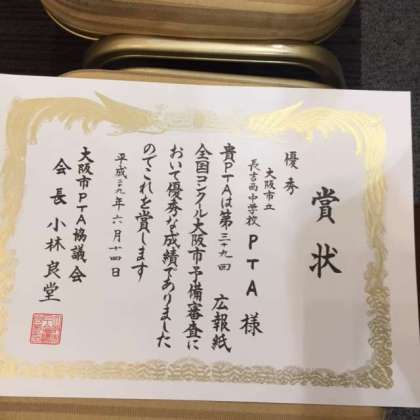 賞状
優秀
大阪市立
長吉西中学校
PTA様
貴PTAは第三十九回 広報紙
全国コンクール大阪市予備審査に
おいて優秀な成績でありました
のでこれを賞します
平成二十九年六月二十四日
大阪市PTA協議会
会長 小林良堂